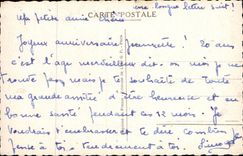 une longue lettre suit !
Ma petite amie chérie
CARTE POSTALE
Joyeux anniversaire Jeannette ! 20 ans
c'est l'âge merveilleux dit-on moi je ne
trouve pas, mais je te souhaite de toute
ma grande amitié d'être heureuse et en
bonne santé pendant ces 12 mois. Je
voudrais t'embrasser et te dire combien
pense à toi tendrement à toi. Simone